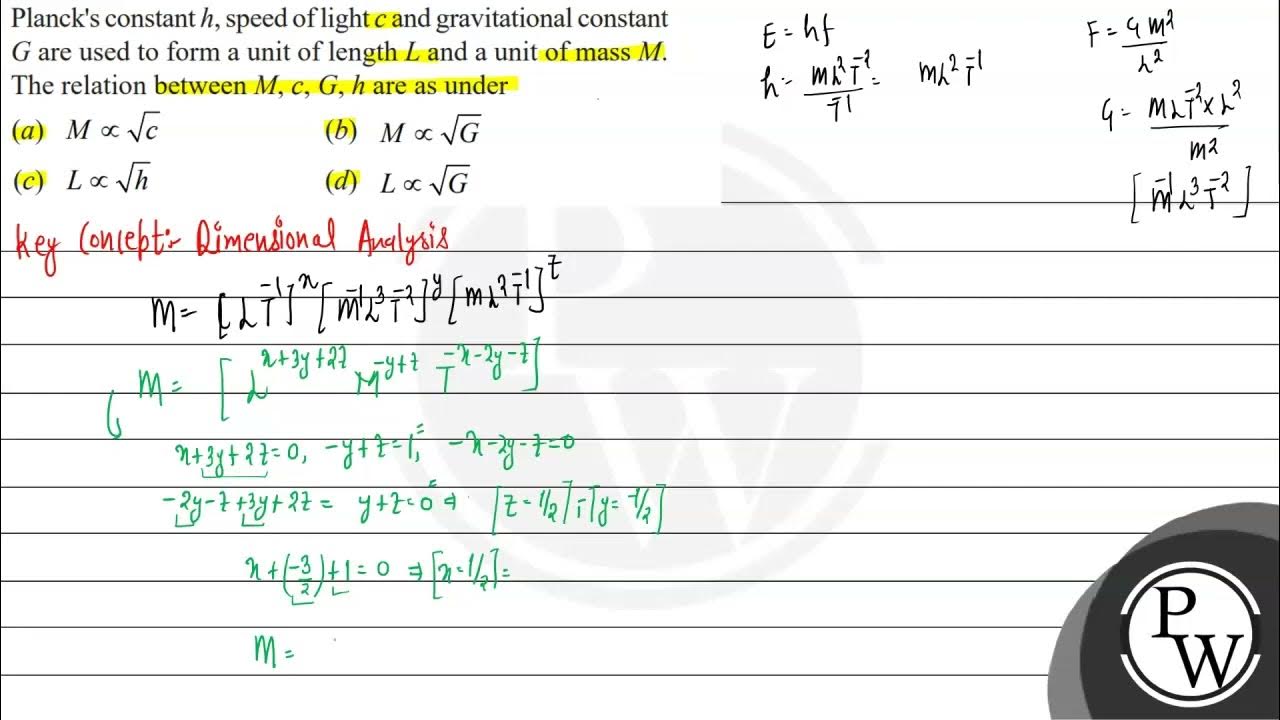 Planck's constant h, speed of light c and gravitational constant
G are used to form a unit of length L and a unit of mass M.
The relation between M, c, G, h are as under
(a) M ∝ √c (b) M ∝ √G
(c) L ∝ √h (d) L ∝ √G
E = hf
h = ML²T⁻² / T⁻¹ = ML²T⁻¹
F = GM² / L²
G = MLT⁻² × L² / M²
[M⁻¹L³T⁻²]
Key Concept:- Dimensional Analysis
M = [LT⁻¹]ˣ [M⁻¹L³T⁻²]ʸ [ML²T⁻¹]ᶻ
M = [L^(x+3y+2z) M^(-y+z) T^(-x-2y-z)]
x+3y+2z=0, -y+z=1, -x-2y-z=0
-2y-z+3y+2z = y+z=0 ⇒ [z=1/2] [y=-1/2]
x+(-3/2)+1=0 ⇒ [x=1/2]=
M =
P
W
PW